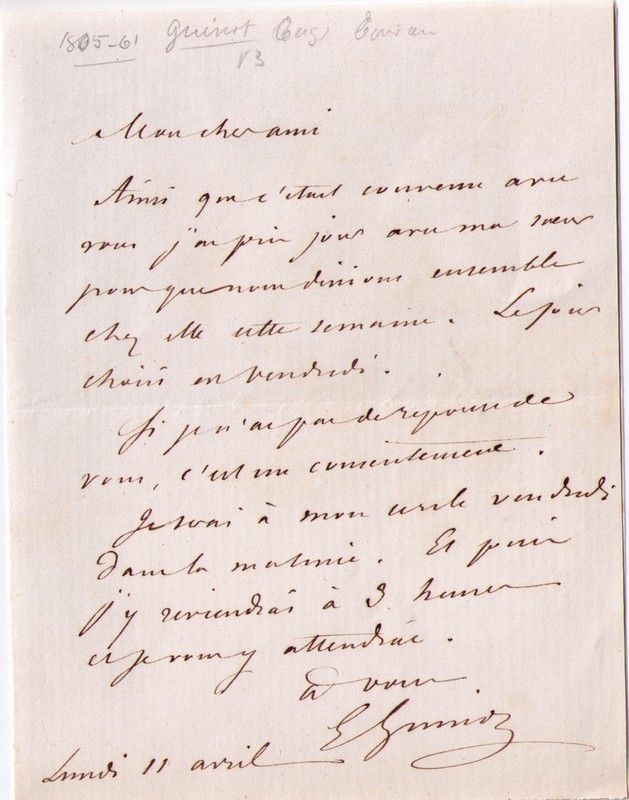 1805-61 Guinot Eug
Mon cher ami
Ainsi que c'était convenu avec
vous j'ai pris jour avec ma soeur
pour que nous dinions ensemble
chez elle cette semaine. Le jour
choisi est vendredi.
Si je n'ai pas de réponse de
vous, c'est un consentement.
Je serai à mon cercle vendredi
dans la matinée. Et puis
j'y reviendrai à 3 heures
et je vous y attendrai.
à vous
E Guinot
Lundi 11 avril